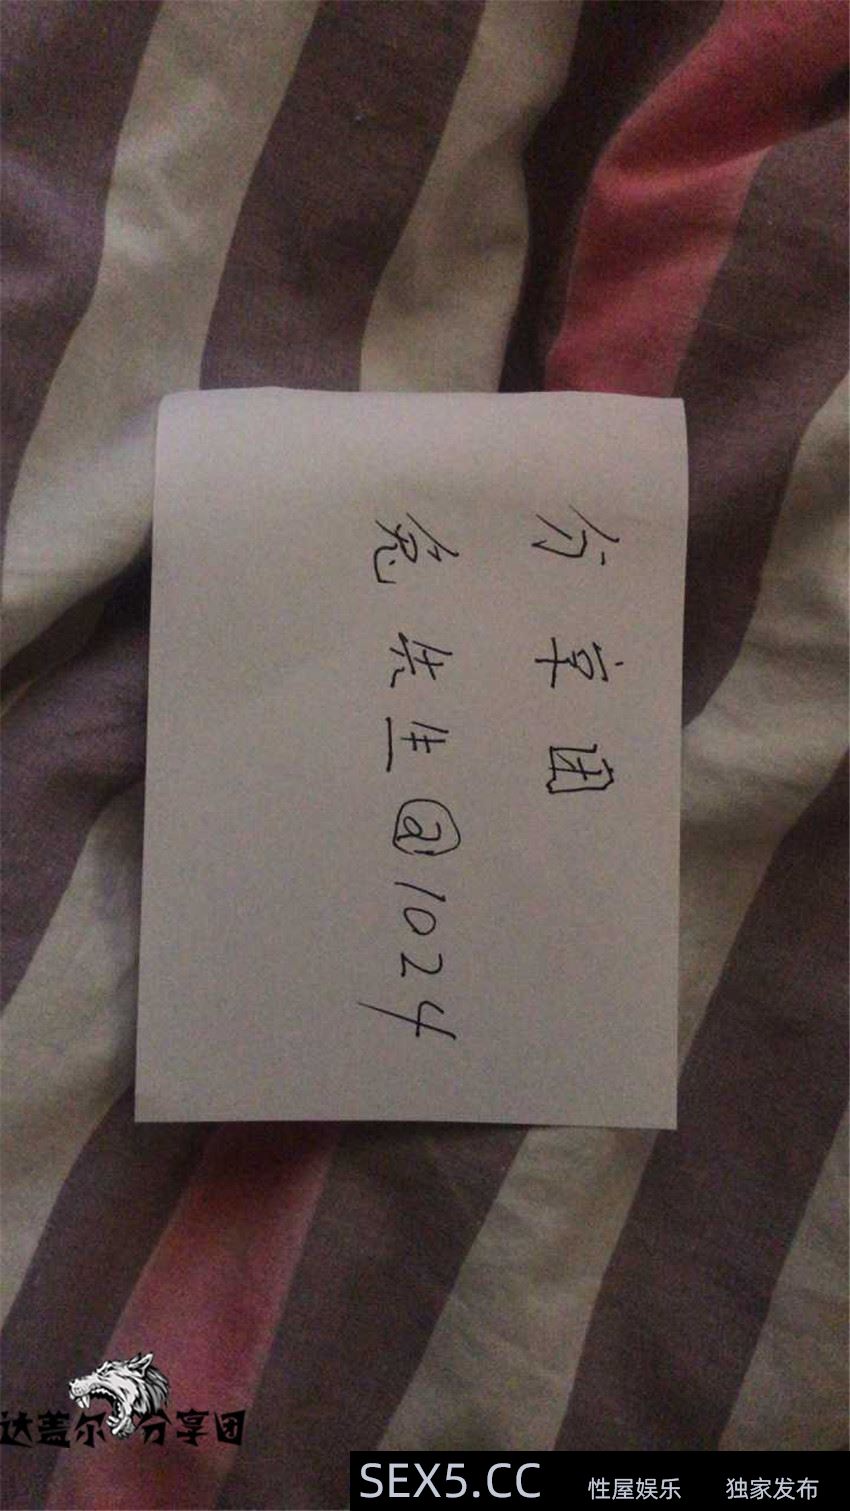 分享团
兔先生@1024
达盖尔分享团
SEX5.CC 性屋娱乐 独家发布